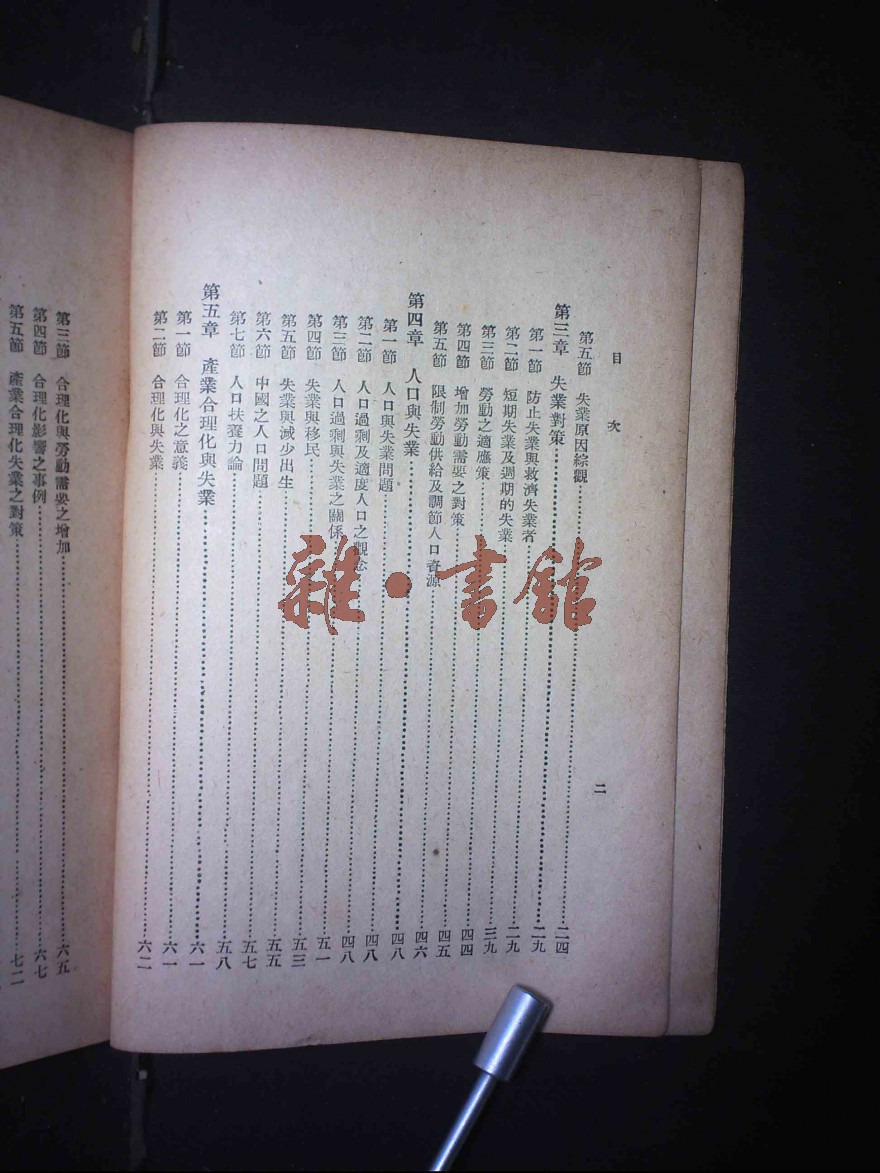 目次
二
第五節 失業原因綜觀……二四
第三章 失業對策……二九
第一節 防止失業與救濟失業者……二九
第二節 短期失業及週期的失業……三九
第三節 勞動之適應策……四四
第四節 增加勞動需要之對策……四五
第五節 限制勞動供給及調節人口資源……四六
第四章 人口與失業……四八
第一節 人口與失業問題……四八
第二節 人口過剩及適度人口之觀念……四八
第三節 人口過剩與失業之關係……五一
第四節 失業與移民……五三
第五節 失業與減少出生……五五
第六節 中國之人口問題……五七
第七節 人口扶養力論……五八
第五章 產業合理化與失業……六一
第一節 合理化之意義……六一
第二節 合理化與失業……六二
第三節 合理化與勞動需要之增加……六五
第四節 合理化影響之事例……六七
第五節 產業合理化失業之對策……七二
雜·書館